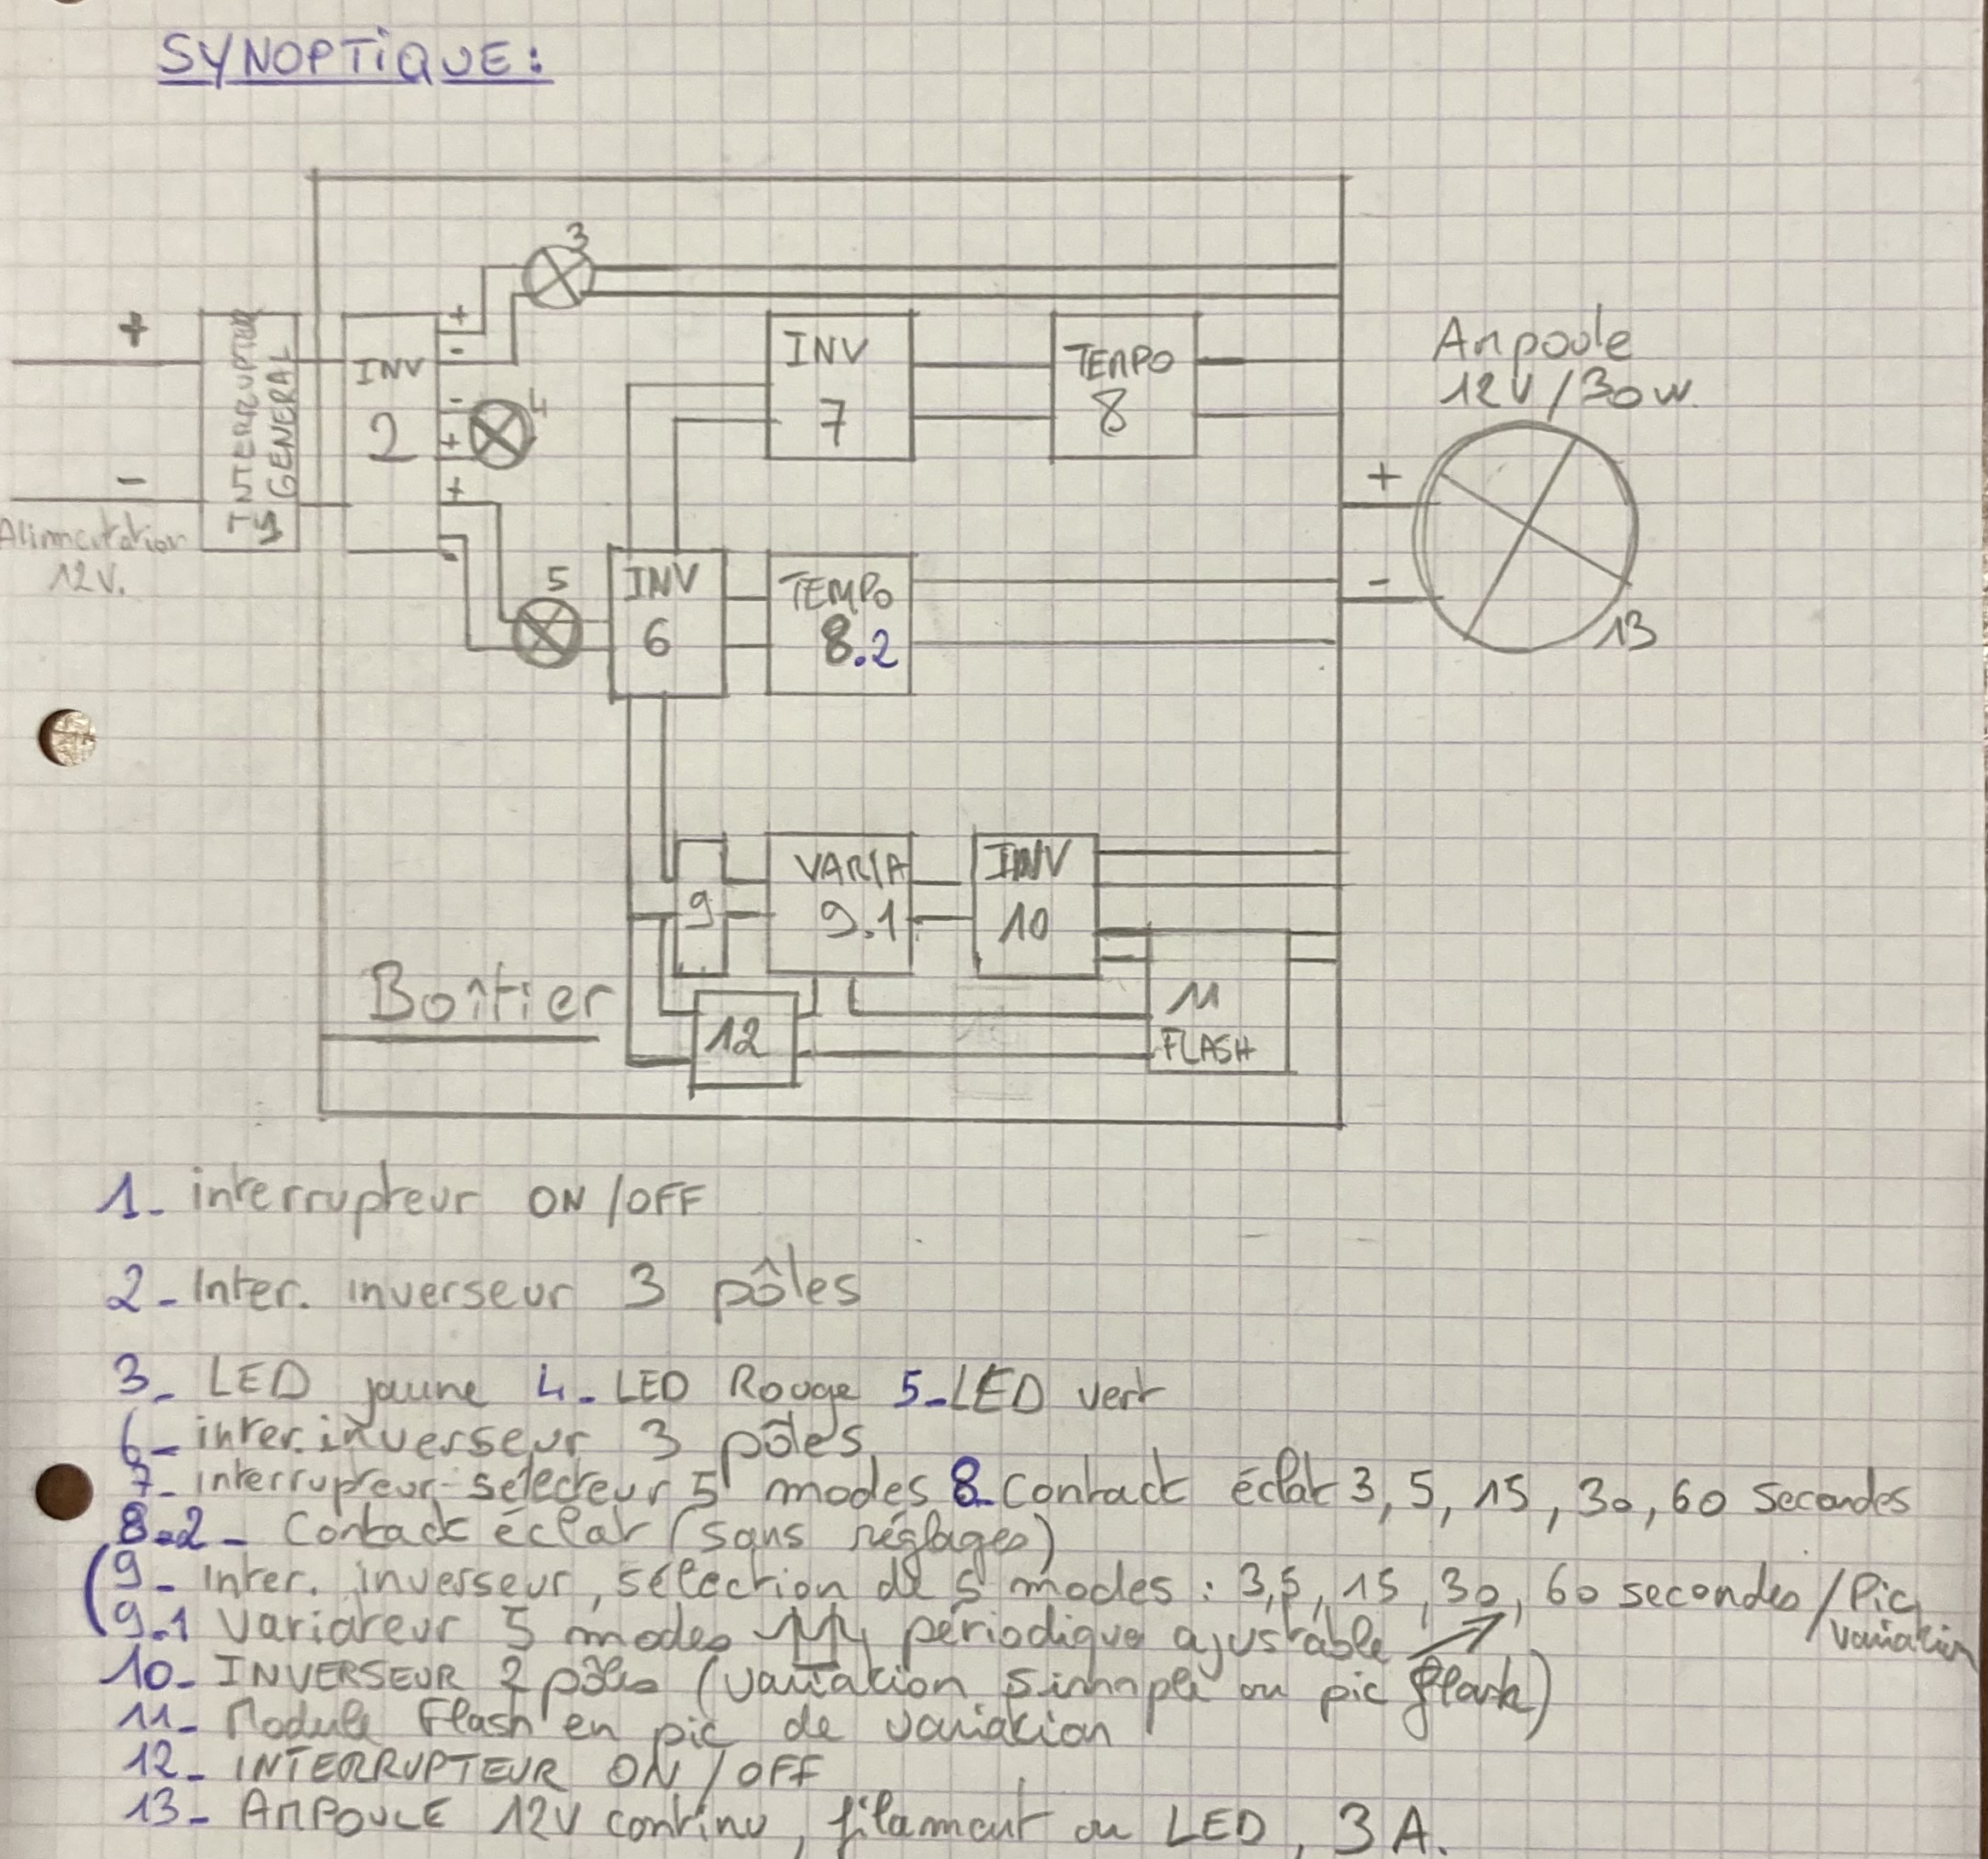 SYNOPTIQUE:
3
+
-
INTERRUPTEUR
GENERAL
1
INV
2
+
-
-
+
+
-
4
INV
7
TEMPO
8
Ampoule
12V/30W.
+
-
13
Alimentation
12V.
5
INV
6
TEMPO
8.2
9
VARIA
9.1
INV
10
Boîtier
12
11
FLASH
1- interrupteur ON/OFF
2- Inter. inverseur 3 pôles
3- LED jaune 4- LED Rouge 5- LED vert
6- inter. inverseur 3 pôles
7- interrupteur-sélecteur 5 modes 8- Contact éclat 3, 5, 15, 30, 60 secondes
8.2- Contact éclat (sans réglages)
9- Inter. inverseur, sélection de 5 modes : 3,5, 15, 30, 60 secondes / Pic variation
9.1 Variateur 5 modes périodique ajustable
10- INVERSEUR 2 pôles (variation simple ou pic flash)
11- Module Flash en pic de variation
12- INTERRUPTEUR ON/OFF
13- AMPOULE 12V continu, filament ou LED, 3A.